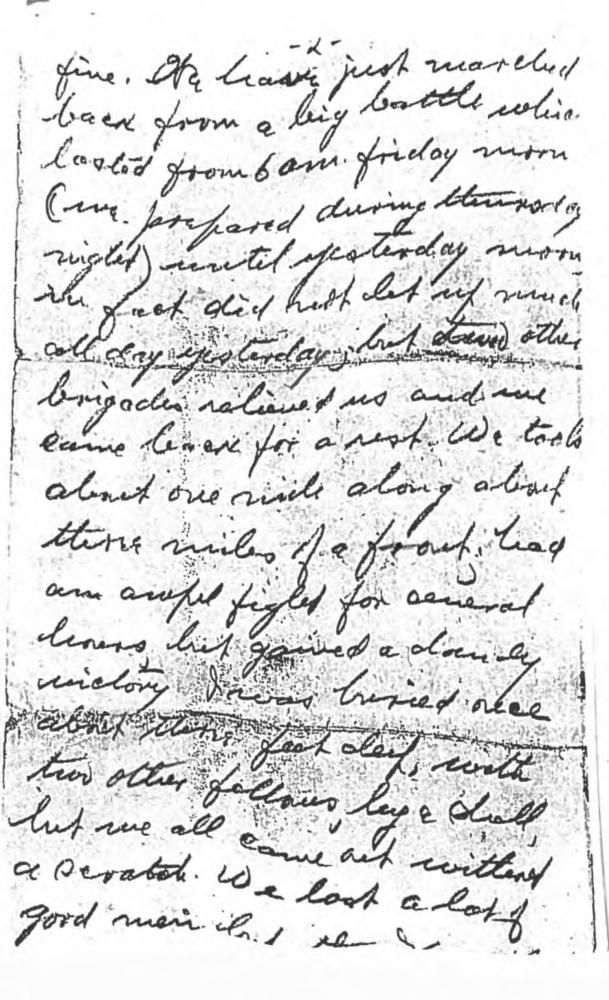 -2-
fine. We have just marched
back from a big battle whic
lasted from 6 am. friday morn
(we. prepared during thursday
night) until yesterday morn
in fact did not let up much
all day yesterday, but other
brigades relieved us and we
came back for a rest. We took
about one mile along about
three miles of a front, had
an awful fight for several
hours but gained a dandy
victory I was buried once
about three feet deep, with
two other fellows, by a shell,
but we all came out without
a scratch. We lost a lot of
good men